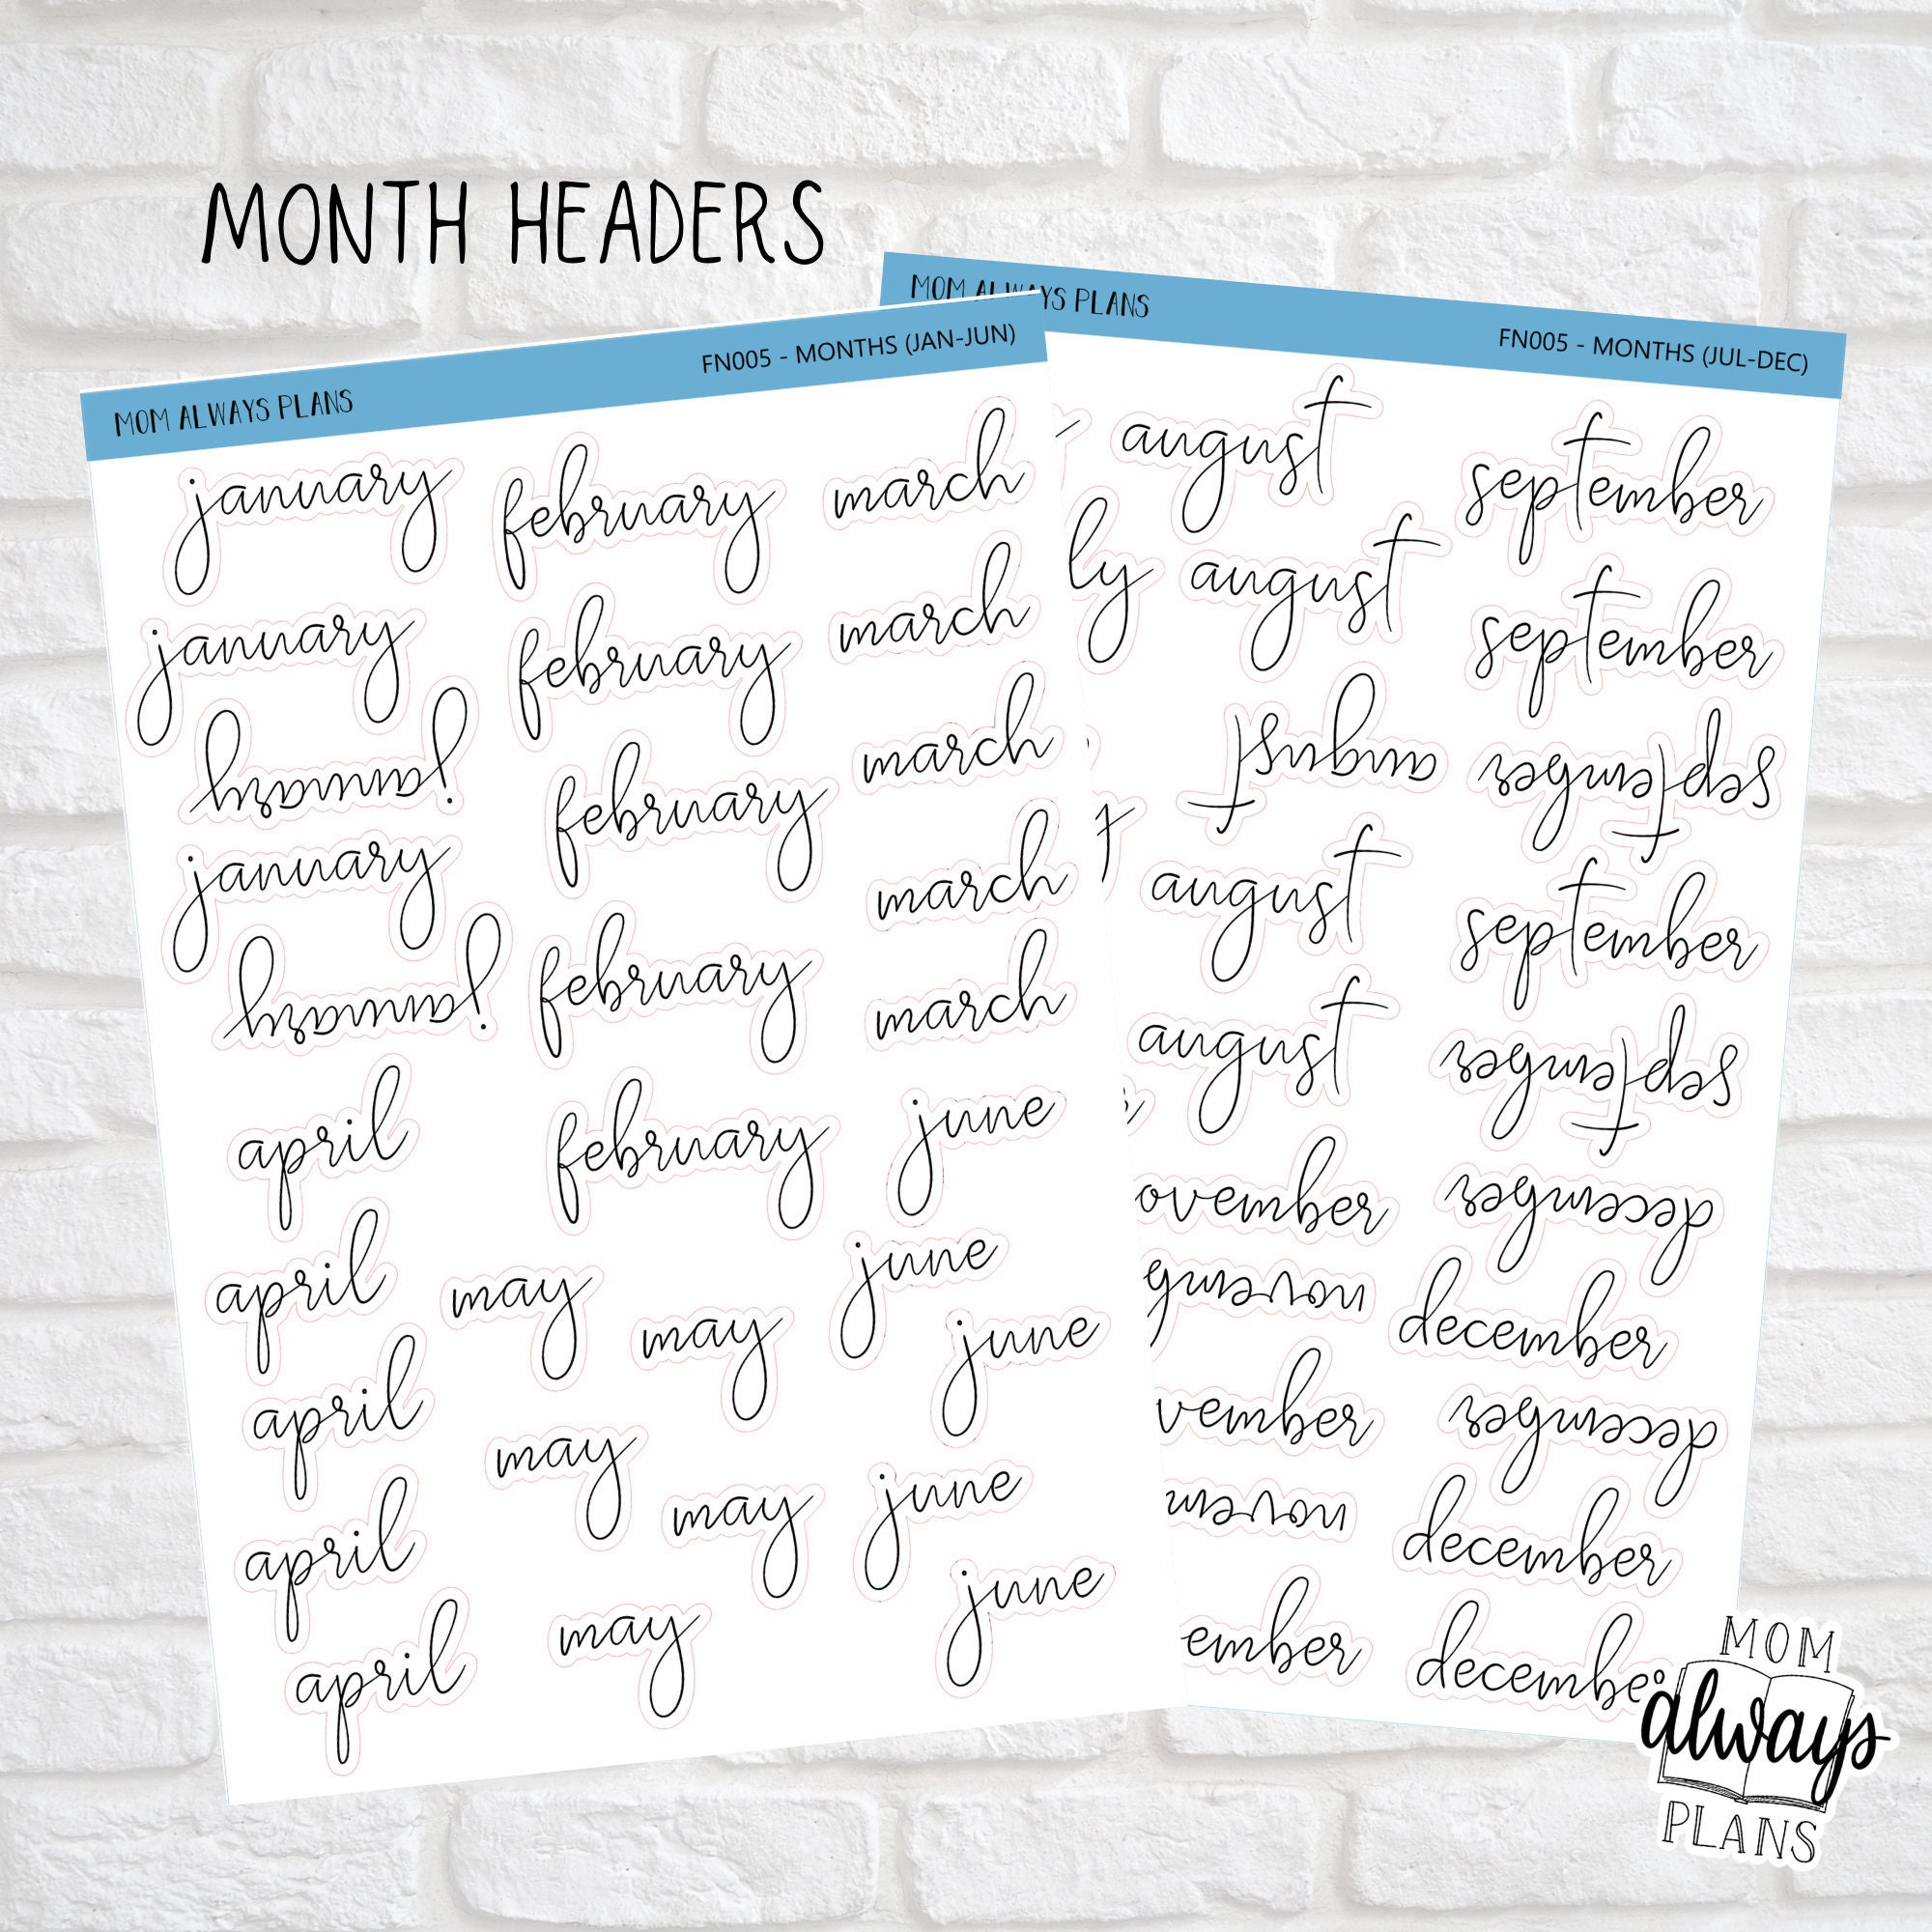 MONTH HEADERS
MOM ALWAYS PLANS
FN005 - MONTHS (JAN-JUN)
january
february
march
january
february
march
january
february
march
january
february
march
january
february
march
april
february
june
april
may
june
april
may
june
april
may
june
april
may
june
may
MOM ALWAYS PLANS
FN005 - MONTHS (JUL-DEC)
august
september
ly
august
september
august
september
august
september
august
september
ovember
december
novemb
december
vember
december
novem
december
ember
decembe
MOM
always
PLANS